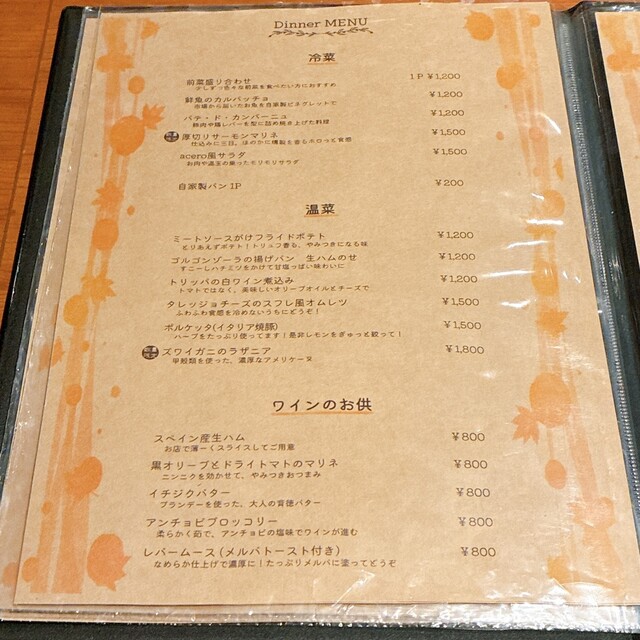 Dinner MENU
冷菜
前菜盛り合わせ 1P ¥1,200
少しずつ色々な前菜を食べたい方におすすめ
鮮魚のカルパッチョ ¥1,200
市場から届いたお魚を自家製ビネグレットで
パテ・ド・カンパーニュ ¥1,200
豚肉や鶏レバーを型に詰め焼き上げた料理
厚切りサーモンマリネ ¥1,500
仕込みに三日、ほのかに燻製を香るホロっと食感
acero風サラダ ¥1,500
お肉や温玉の乗ったモリモリサラダ
自家製パン 1P ¥200
温菜
ミートソースがけフライドポテト ¥1,200
とりあえずポテト!トリュフ香る、やみつきになる味
ゴルゴンゾーラの揚げパン 生ハムのせ ¥1,200
すこーしハチミツをかけて甘塩っぱい味わいに
トリッパの白ワイン煮込み ¥1,200
トマトではなく、美味しいオリーブオイルとチーズで
タレッジョチーズのスフレ風オムレツ ¥1,500
ふわふわ食感を冷めないうちにどうぞ!
ポルケッタ(イタリア焼豚) ¥1,500
ハーブをたっぷり使ってます!是非レモンをぎゅっと絞って!
ズワイガニのラザニア ¥1,800
甲殻類を使った、濃厚なアメリケーヌ
ワインのお供
スペイン産生ハム ¥800
お店で薄ーくスライスしてご用意
黒オリーブとドライトマトのマリネ ¥800
ニンニクを効かせて、やみつきおつまみ
イチジクバター ¥800
ブランデーを使った、大人の背徳バター
アンチョビブロッコリー ¥800
柔らかく茹で、アンチョビの塩味でワインが進む
レバームース(メルバトースト付き) ¥800
なめらか仕上げで濃厚に!たっぷりメルバに塗ってどうぞ